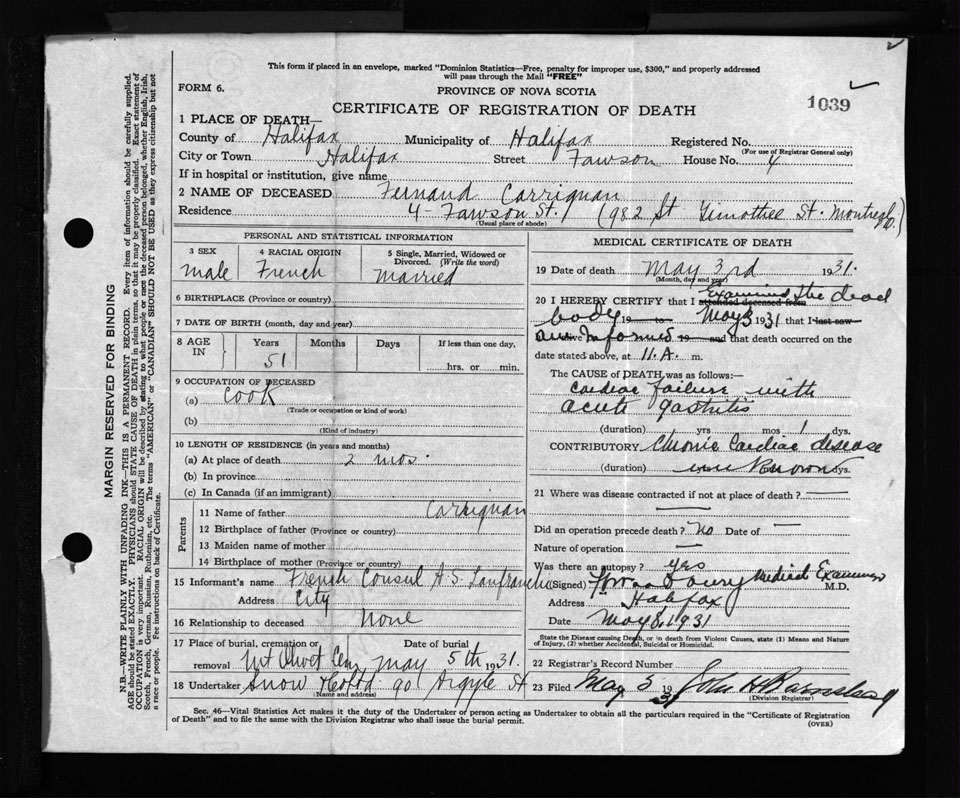 This form if placed in an envelope, marked "Dominion Statistics—Free, penalty for improper use, $300," and properly addressed
will pass through the Mail "FREE"
FORM 6.
PROVINCE OF NOVA SCOTIA
CERTIFICATE OF REGISTRATION OF DEATH
1039
1 PLACE OF DEATH—
County of Halifax Municipality of Halifax Registered No.
(For use of Registrar General only)
City or Town Halifax Street Fawson House No. 4
If in hospital or institution, give name
2 NAME OF DECEASED Fernand Carrignan
Residence 4 - Fawson St. / (982 St Timothee St. Montreal
(Usual place of abode)
PERSONAL AND STATISTICAL INFORMATION
3 SEX 4 RACIAL ORIGIN 5 Single, Married, Widowed or
Divorced. (Write the word)
male French Married
6 BIRTHPLACE (Province or country)
7 DATE OF BIRTH (month, day and year)
8 AGE IN Years Months Days If less than one day,
51 hrs. or min.
9 OCCUPATION OF DECEASED
(a) Cook
(Trade or occupation or kind of work)
(b)
(Kind of industry)
10 LENGTH OF RESIDENCE (in years and months)
(a) At place of death 2 mos.
(b) In province
(c) In Canada (if an immigrant)
Parents
11 Name of father Carrignan
12 Birthplace of father (Province or country)
13 Maiden name of mother
14 Birthplace of mother (Province or country)
15 Informant's name French Consul A S. Lanfranchi
Address City
16 Relationship to deceased None
17 Place of burial, cremation or removal Date of burial
Mt Olivet Cem May 5th 1931.
18 Undertaker Snow 90 Argyle St
(Name and address)
MEDICAL CERTIFICATE OF DEATH
19 Date of death May 3rd 1931.
(Month, day and year)
20 I HEREBY CERTIFY that I attended deceased from Examined the dead
body 19 to May 3 1931 that I last saw
Informed 19 and that death occurred on the
date stated above, at 11. A. m.
The CAUSE of DEATH was as follows:—
Cardiac failure with
acute gastritis
(duration) yrs mos 1 dys.
CONTRIBUTORY Chronic Cardiac disease
(duration) unknown dys.
21 Where was disease contracted if not at place of death?
Did an operation precede death? No Date of —
Nature of operation —
Was there an autopsy? yes
(Signed) Medical Examiner M.D.
Address Halifax
Date May 8, 1931
State the Disease causing Death, or in death from Violent Causes, state (1) Means and Nature
of Injury, (2) whether Accidental, Suicidal or Homicidal.
22 Registrar's Record Number
23 Filed May 5 1931 John H Barnstead
(Division Registrar)
Sec. 46—Vital Statistics Act makes it the duty of the Undertaker or person acting as Undertaker to obtain all the particulars required in the "Certificate of Registration
of Death" and to file the same with the Division Registrar who shall issue the burial permit.
(OVER)
MARGIN RESERVED FOR BINDING
N.B.—WRITE PLAINLY WITH UNFADING INK—THIS IS A PERMANENT RECORD. Every item of information should be carefully supplied.
AGE should be stated EXACTLY. PHYSICIANS should STATE CAUSE OF DEATH in plain terms, so that it may be properly classified. Exact statement of
OCCUPATION is very important. RACIAL ORIGIN will be described by stating to what people or race the deceased person belonged, whether English, Irish,
Scotch, French, German, Russian, Ruthenian, etc. The terms "AMERICAN" or "CANADIAN" SHOULD NOT BE USED as they express citizenship but not
a race or people. See instructions on back of Certificate.